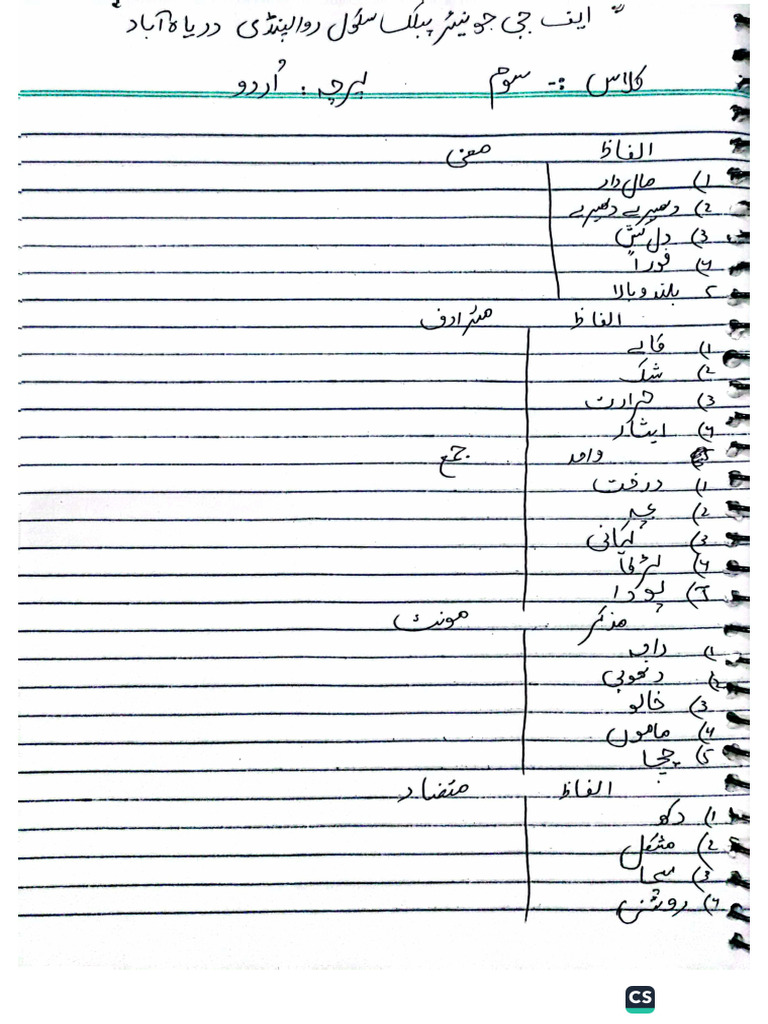 ایف جی جونیئر پبلک سکول روالپنڈی دریاہ آباد
کلاس :- سوم پرچہ : اُردو
الفاظ معنی
1) مال دار
2) دھیرے دھیرے
3) دل کش
4) فوراً
5 بلند و بالا
الفاظ مترادف
1)
2) شک
3) حرارت
4) ایثار
واحد جمع
1) درخت
2) بچہ
3) کہانی
4) لڑکا
5) پودا
مذکر مونث
1)
2) دھوبی
3) خالو
4) ماموں
5) چچا
الفاظ متضاد
1) دکھ
2) مشکل
3) سچا
4) روشنی
CS